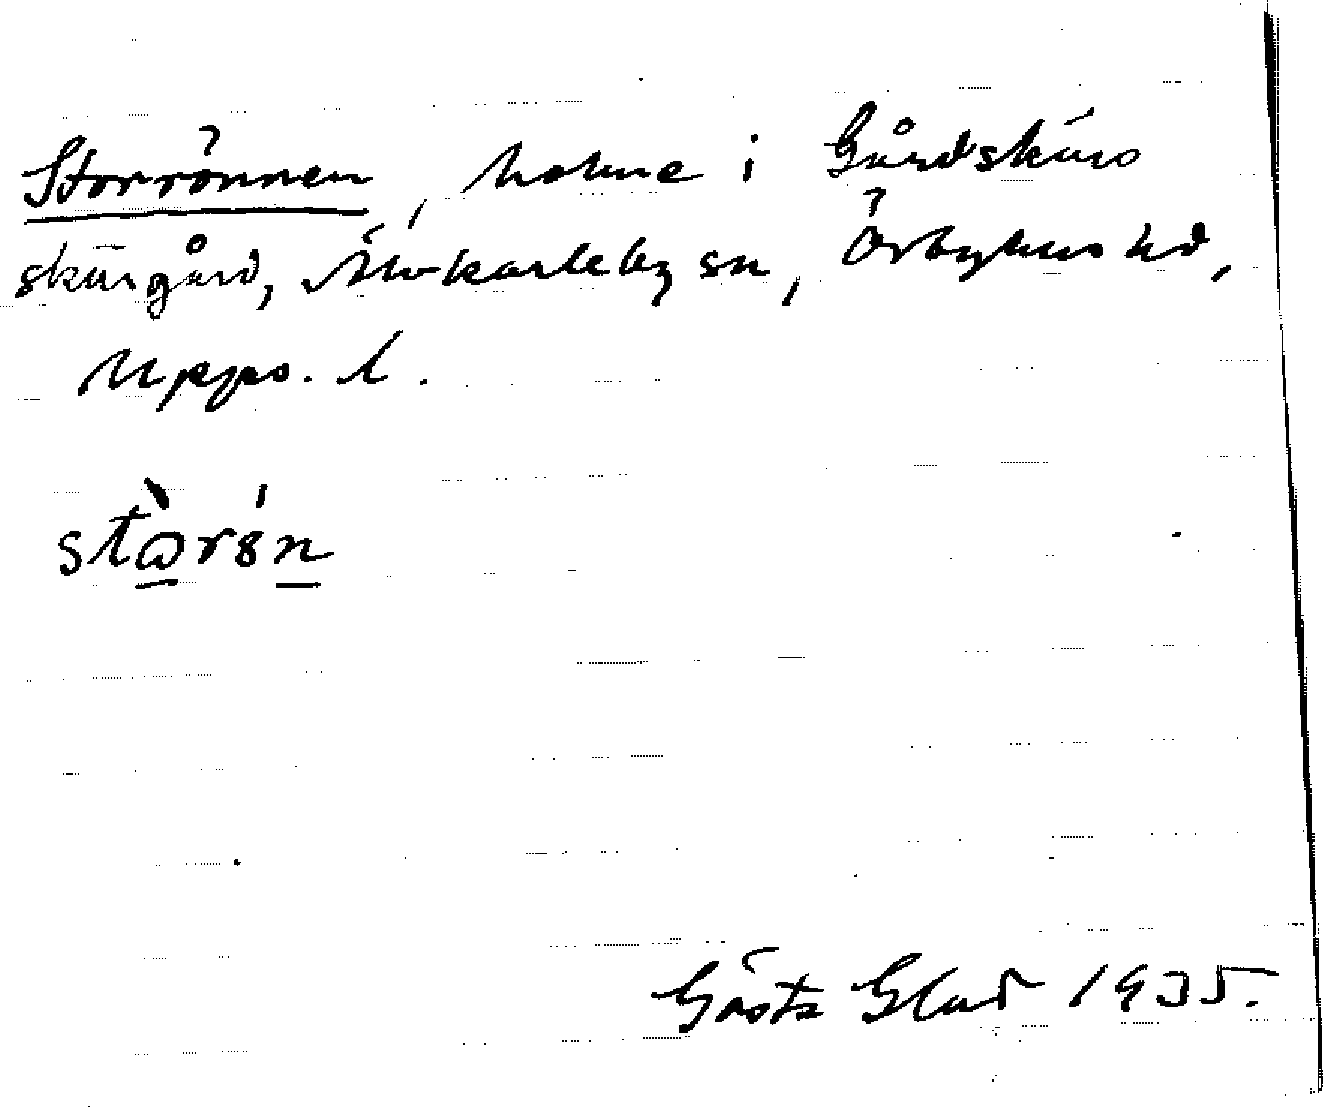 Storrönnen, holme i Gårdskärs
skärgård, Älvkarleby sn, Örbyhus hd,
Upps. l.
stὼ̲rö́n̲
Gösta Glad 1935.